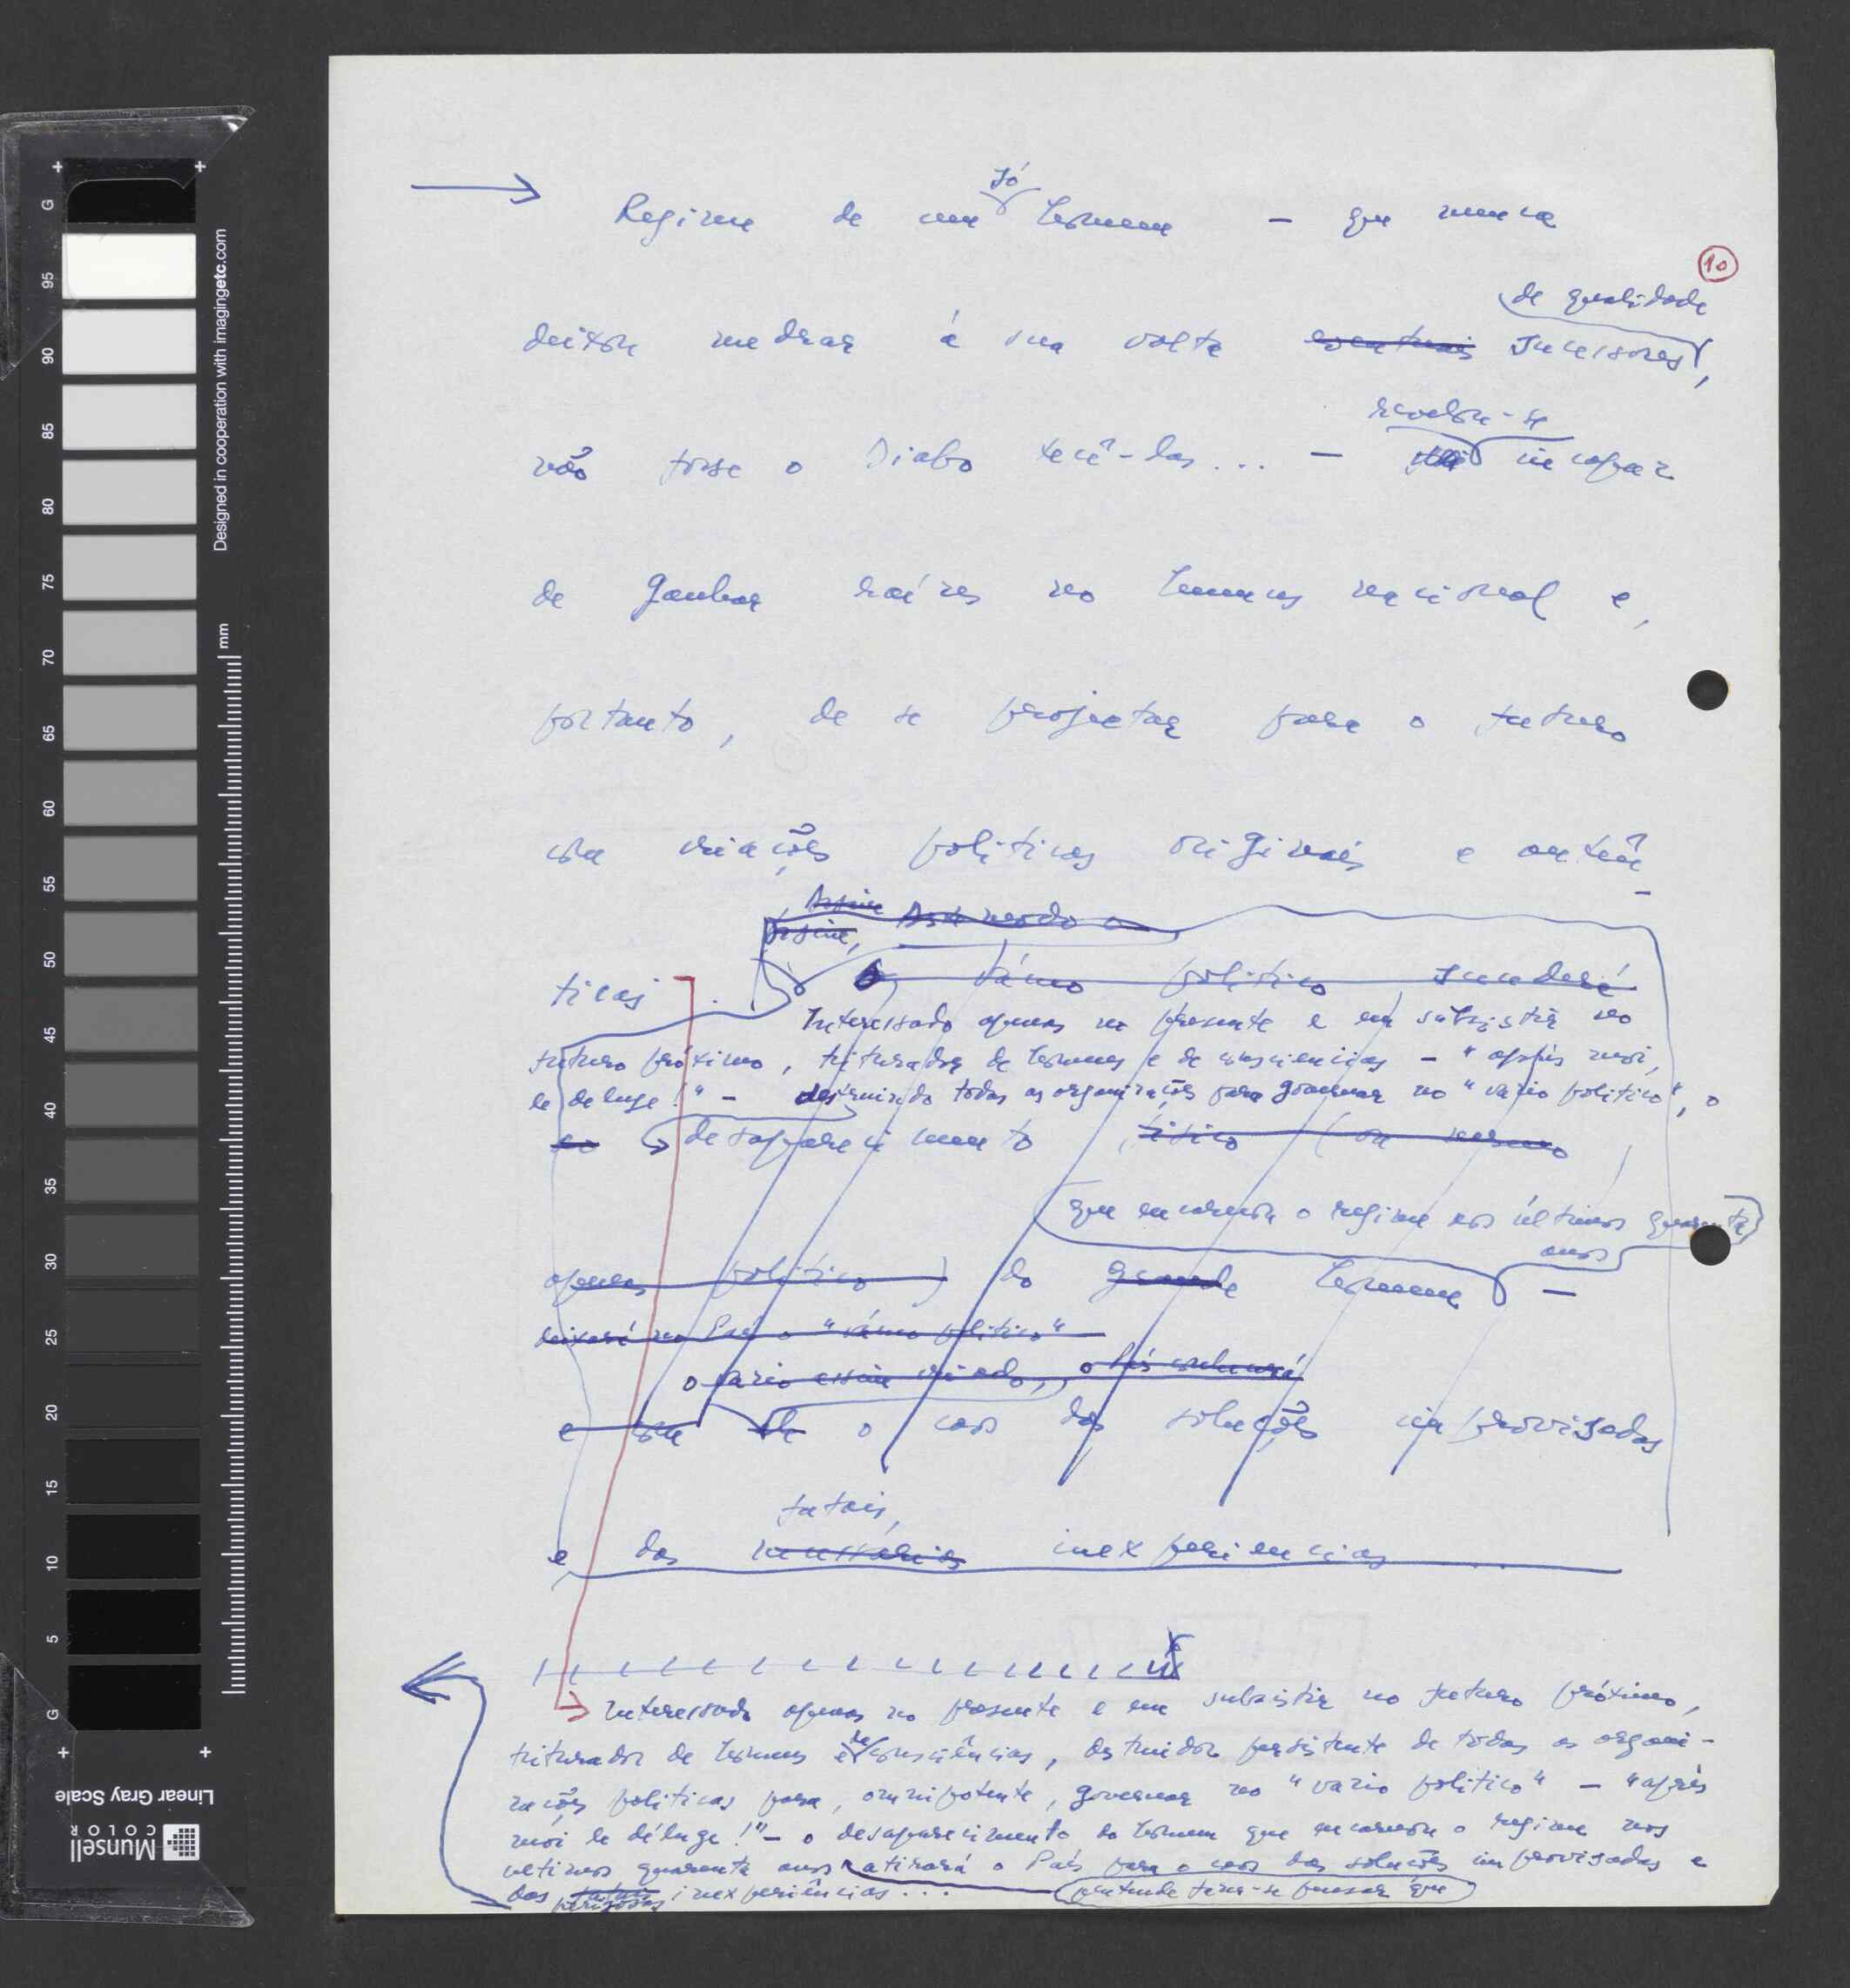 só
Regime de um homem — que nunca
10
de qualidade
deixou medrar à sua volta eventuais sucessores,
revelou-se
não fosse o Diabo tecê-las... — incapaz
de ganhar raízes no humus nacional e,
portanto, de se projectar para o futuro
com criações politicas originais e autên-
Assim Assente no modo o
Assim,
ticas. O vácuo politico sucederá
Interessado apenas no presente e em subsistir no
futuro próximo, triturador de homens e de consciencias — "après moi,
le deluge!" — destruindo todas as organizações para governar no "vazio politico", o
ao desaparecimento fisico (ou mesmo
que encarnou o regime nos últimos quarenta
anos
apenas politico) do grande homem —
deixará no País o "vácuo politico"
o vazio assim criado, o País conhecerá
e com ele o caos das soluções improvisadas
fatais,
e das necessárias inexperiencias
Interessado apenas no presente e em subsistir no futuro próximo,
triturador de homens e de consciências, destruidor persistente de todas as organi-
zações politicas para, omnipotente, governar no "vazio politico" — "après
moi le déluge!" — o desaparecimento do homem que encarnou o regime nos
ultimos quarenta anos atirará o País para o caos das soluções improvisadas e
das fatais inexperiências...
perigosas
pretende fazer-se pensar que
Designed in cooperation with imagingetc.com
mm
G 95 90 85 80 75 70 65 60 55 50 45 40 35 30 25 20 15 10 5 G
Munsell
COLOR
Linear Gray Scale